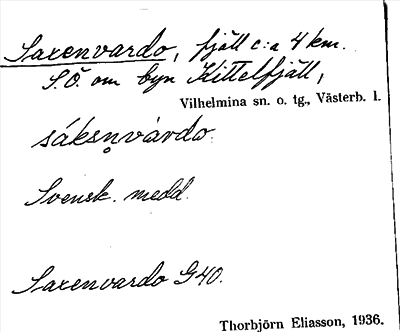 Saxenvardo, fjäll c:a 4 km.
S.Ö. om byn Kittelfjäll,
Vilhelmina sn. o. tg., Västerb. l.
sáksn̥vàrdo.
Svensk. medd.
Saxenvardo G40.
Thorbjörn Eliasson, 1936.